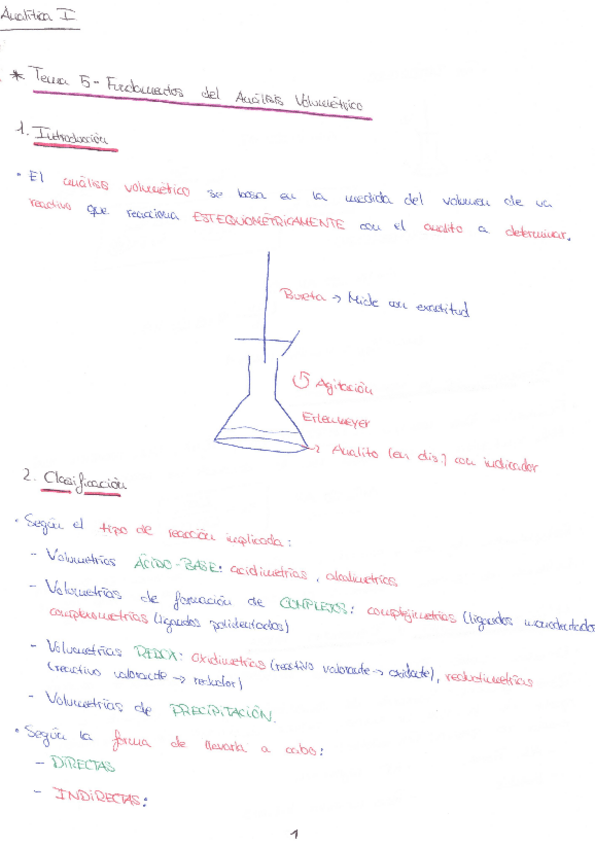 Analítica I
* Tema 5 - Fundamentos del Análisis Volumétrico
1. Introducción
· El análisis volumétrico se basa en la medida del volumen de un
reactivo que reacciona ESTEQUIOMÉTRICAMENTE con el analito a determinar.
Bureta → Mide con exactitud
Agitación
Erlenmeyer
→ Analito (en dis.) con indicador
2. Clasificación
· Según el tipo de reacción implicada:
- Volumetrías ÁCIDO-BASE: acidimetrías, alcalimetrías
- Volumetrías de formación de COMPLEJOS: complejimetrías (ligandos monodentados
complexometrías (ligandos polidentados)
- Volumetrías REDOX: oxidimetrías (reactivo valorante → oxidante), reductimetrías
(reactivo valorante → reductor)
- Volumetrías de PRECIPITACIÓN.
· Según la forma de llevarla a cabo:
- DIRECTAS
- INDIRECTAS:
1